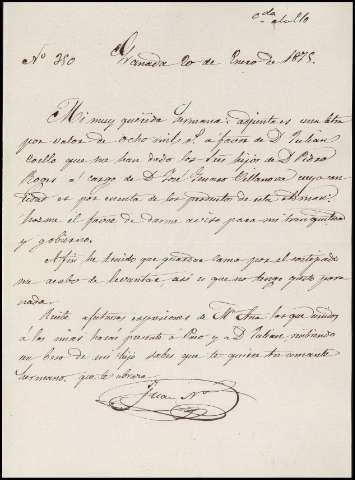 Nº 350
Granada 20 de Enero de 1875.
Mi muy querida hermana: adjunta es una letra
por valor de ocho mil r.s á favor de D. Julian
Coello que me han dado los Sres hijos de D. Pedro
á cargo de D. José Genaro Villanova cuya can
tidad es por cuenta de los productos de este
hazme el favor de darme aviso para mi tranquilidad
y gobierno.
A fin he tenido que guardar cama por el costipado
me acabo de levantar, asi es que no tengo gusto para
nada.
Recibe afectuosas expresiones de Mª Ana las que unidas
á las mias harás presente á Paco y á D. Julian, recibiendo
un beso de mi hijo sabes que te quiere tu amante
hermano, que te abraza
Juan Nº